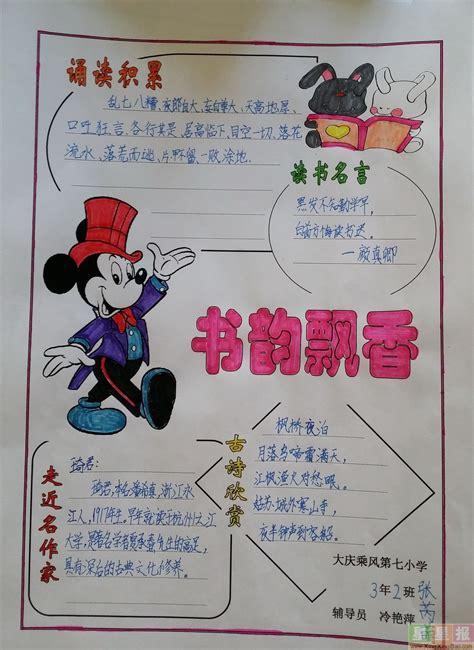 诵读积累
乱七八糟、夜郎自大、妄自尊大、天高地厚、
口吐狂言、各行其是、居高临下、目空一切、落花
流水、落荒而逃、片甲不留、一败涂地、
读书名言
黑发不知勤学早,
白首方悔读书迟。
——颜真卿
书韵飘香
古诗欣赏
枫桥夜泊
月落乌啼霜满天,
江枫渔火对愁眠。
姑苏城外寒山寺,
夜半钟声到客船。
走近名作家
琦君:
琦君,本名潘希真,浙江永
江人,1917年生。早年就读于杭州之江
大学,是著名学者夏承焘先生的高足,
具有深合的古典文化修养。
大庆乘风第七小学
3年2班 张芮
辅导员 冷艳萍
星星报